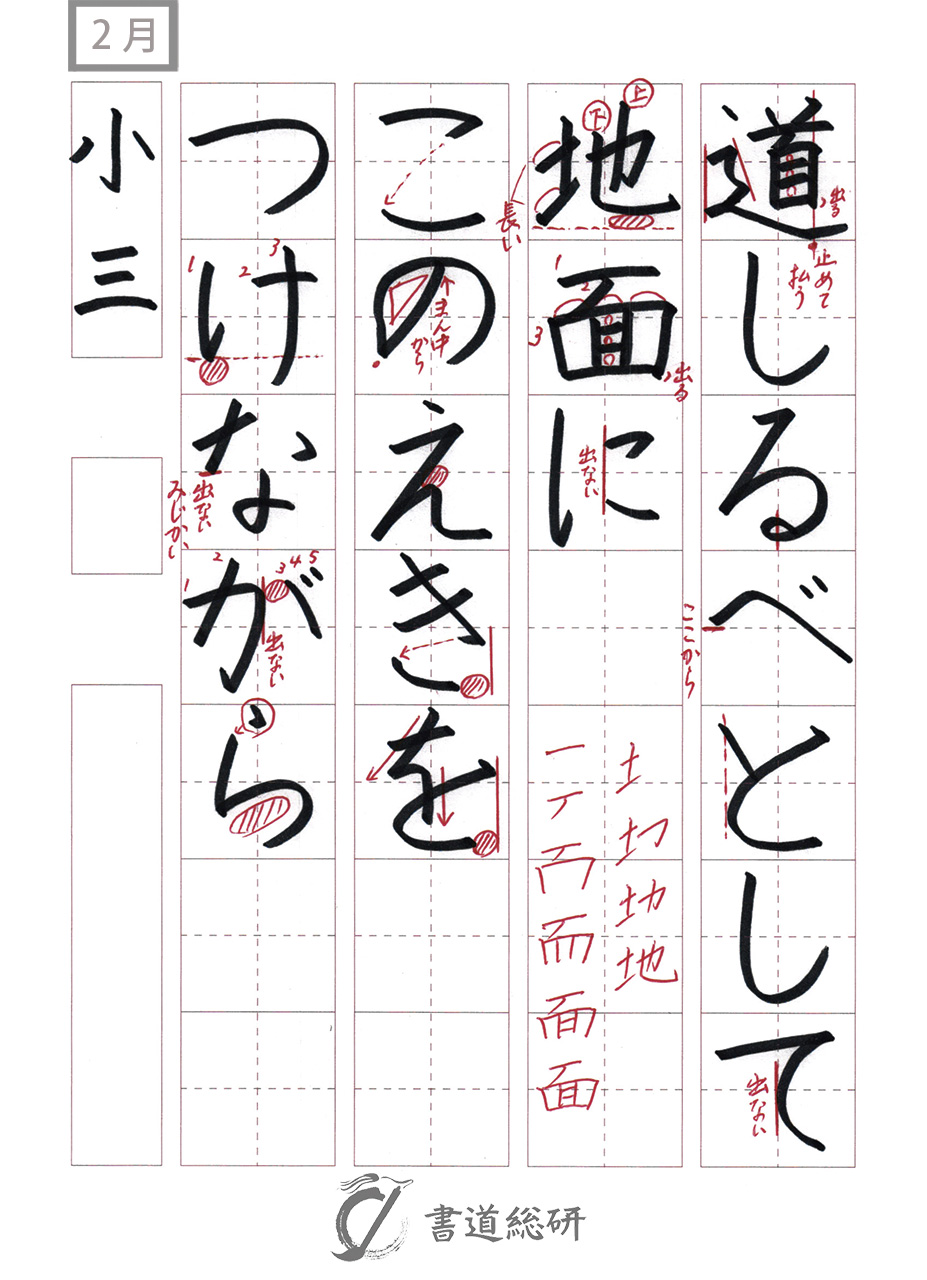 2月
道しるべとして
出る
止めて
払う
ここから
出ない
地面に
上
下
長い
1
2
3
出る
出ない
土
圵
地
一
丆
面
面
このえきを
まん中
から
つけながら
1
2
3
出ない
みじかい
1
2
3
4
5
出ない
小三
書道総研